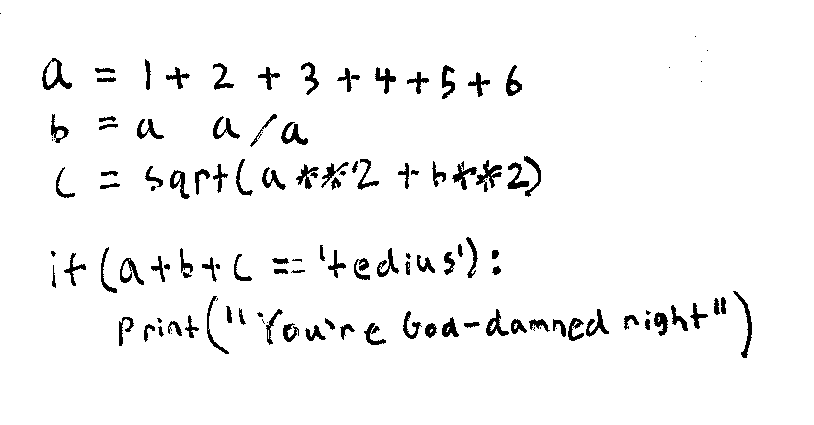 a = 1 + 2 + 3 + 4 + 5 + 6
b = a a/a
c = sqrt(a**2 + b**2)
if (a+b+c == 'tedius'):
print("You're God-damned right")